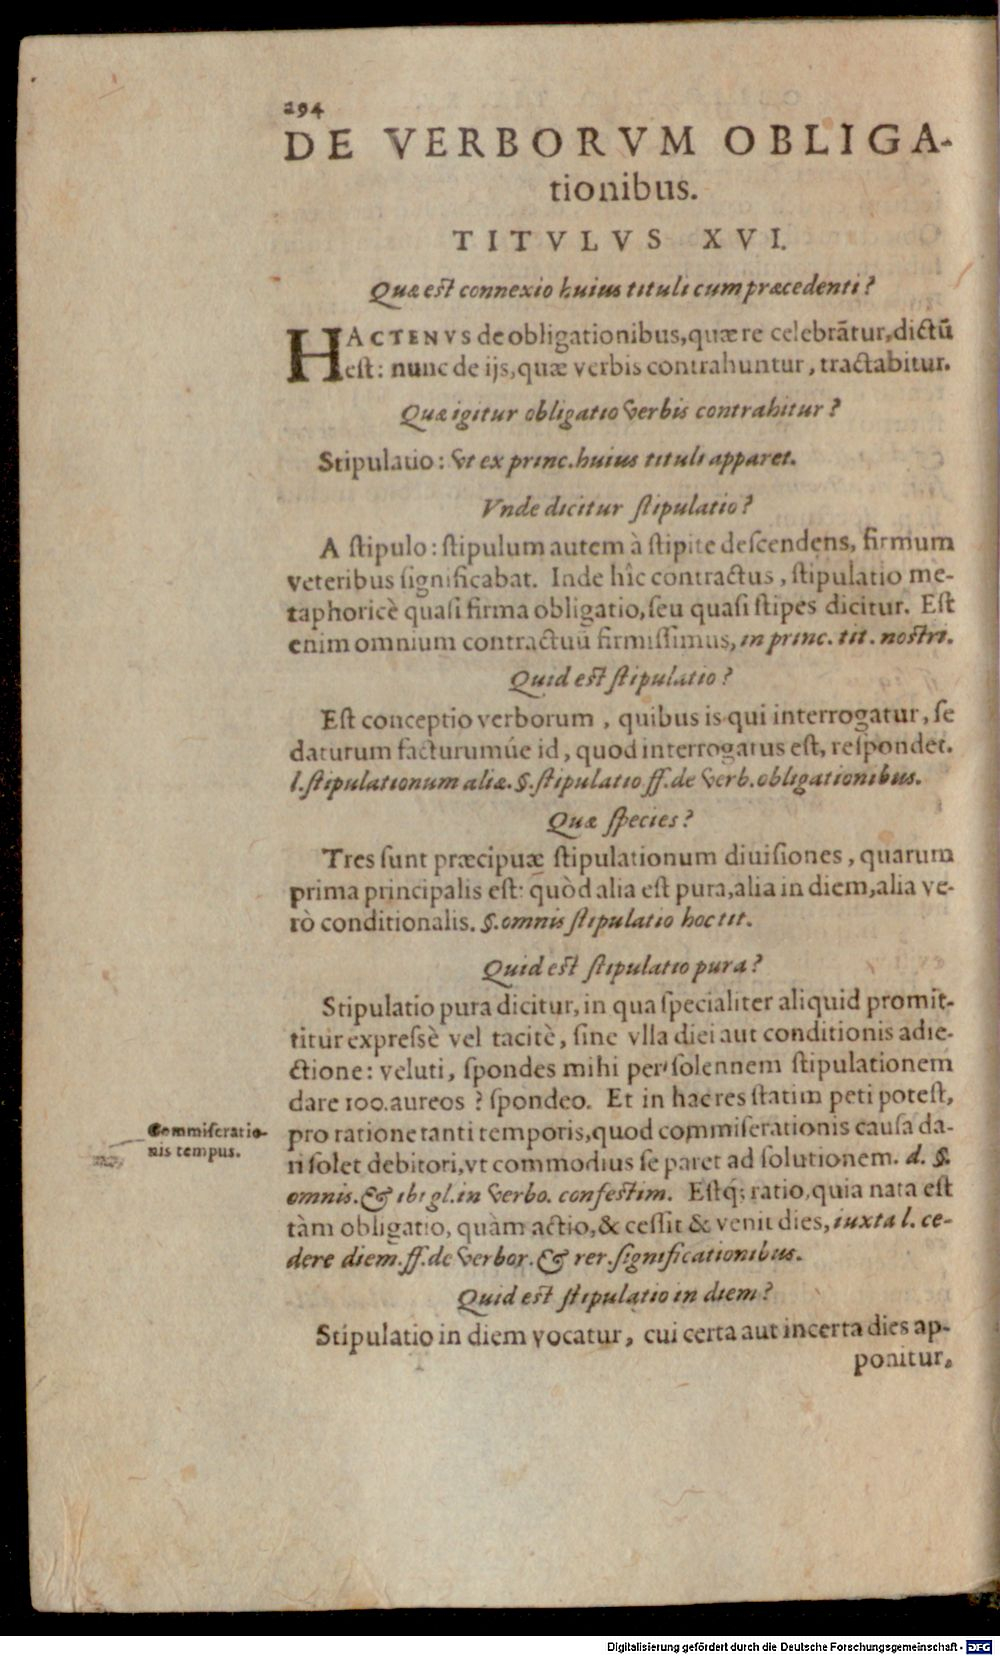 294
DE VERBORVM OBLIGA-
tionibus.
TITVLVS XVI.
Quæ est connexio huius tituli cum præcedenti?
HACTENVS de obligationibus, quæ re celebrãtur, dictũ
est: nunc de ijs, quæ verbis contrahuntur, tractabitur.
Quæ igitur obligatio verbis contrahitur?
Stipulatio: vt ex princ. huius tituli apparet.
Vnde dicitur stipulatio?
A stipulo: stipulum autem à stipite descendens, firmum
veteribus significabat. Inde hîc contractus, stipulatio me-
taphoricè quasi firma obligatio, seu quasi stipes dicitur. Est
enim omnium contractuũ firmissimus, in princ. tit. nostri.
Quid est stipulatio?
Est conceptio verborum, quibus is qui interrogatur, se
daturum facturumúe id, quod interrogatus est, respondet.
l. stipulationum aliæ. §. stipulatio ff. de verb. obligationibus.
Quæ species?
Tres sunt præcipuæ stipulationum diuisiones, quarum
prima principalis est: quòd alia est pura, alia in diem, alia ve-
rò conditionalis. §. omnis stipulatio hoc tit.
Quid est stipulatio pura?
Stipulatio pura dicitur, in qua specialiter aliquid promit-
titur expressè vel tacitè, sine vlla diei aut conditionis adie-
ctione: veluti, spondes mihi per solennem stipulationem
dare 100. aureos? spondeo. Et in hac res statim peti potest,
Commiseratio-
nis tempus.
pro ratione tanti temporis, quod commiserationis causa da-
ri solet debitori, vt commodius se paret ad solutionem. d. §.
omnis. & ibi gl. in verbo. confestim. Estq; ratio, quia nata est
tàm obligatio, quàm actio, & cessit & venit dies, iuxta l. ce-
dere diem. ff. de verbor. & rer. significationibus.
Quid est stipulatio in diem?
Stipulatio in diem vocatur, cui certa aut incerta dies ap-
ponitur.
Digitalisierung gefördert durch die Deutsche Forschungsgemeinschaft - DFG